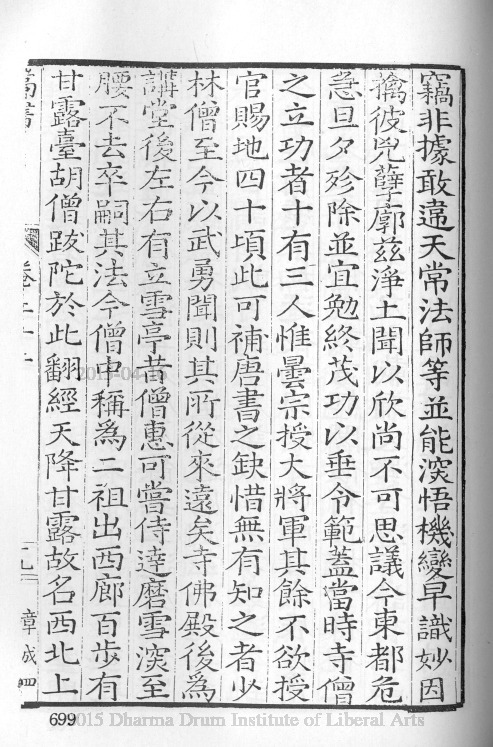 竊非據敢違天常法師等並能深悟機變早識妙因
擒彼兇孽廓茲淨土聞以欣尚不可思議今東都危
急旦夕殄除並宜勉終茂功以垂令範蓋當時寺僧
之立功者十有三人惟曇宗授大將軍其餘不欲授
官賜地四十頃此可補唐書之缺惜無有知之者少
林僧至今以武勇聞則其所從來遠矣寺佛殿後為
講堂後左右有立雪亭昔僧惠可嘗侍達磨雪深至
腰不去卒嗣其法今僧中稱為二祖出西廊百步有
甘露臺胡僧跋陀於此翻經天降甘露故名西北上
章成
四
699
2015 Dharma Drum Institute of Liberal Arts